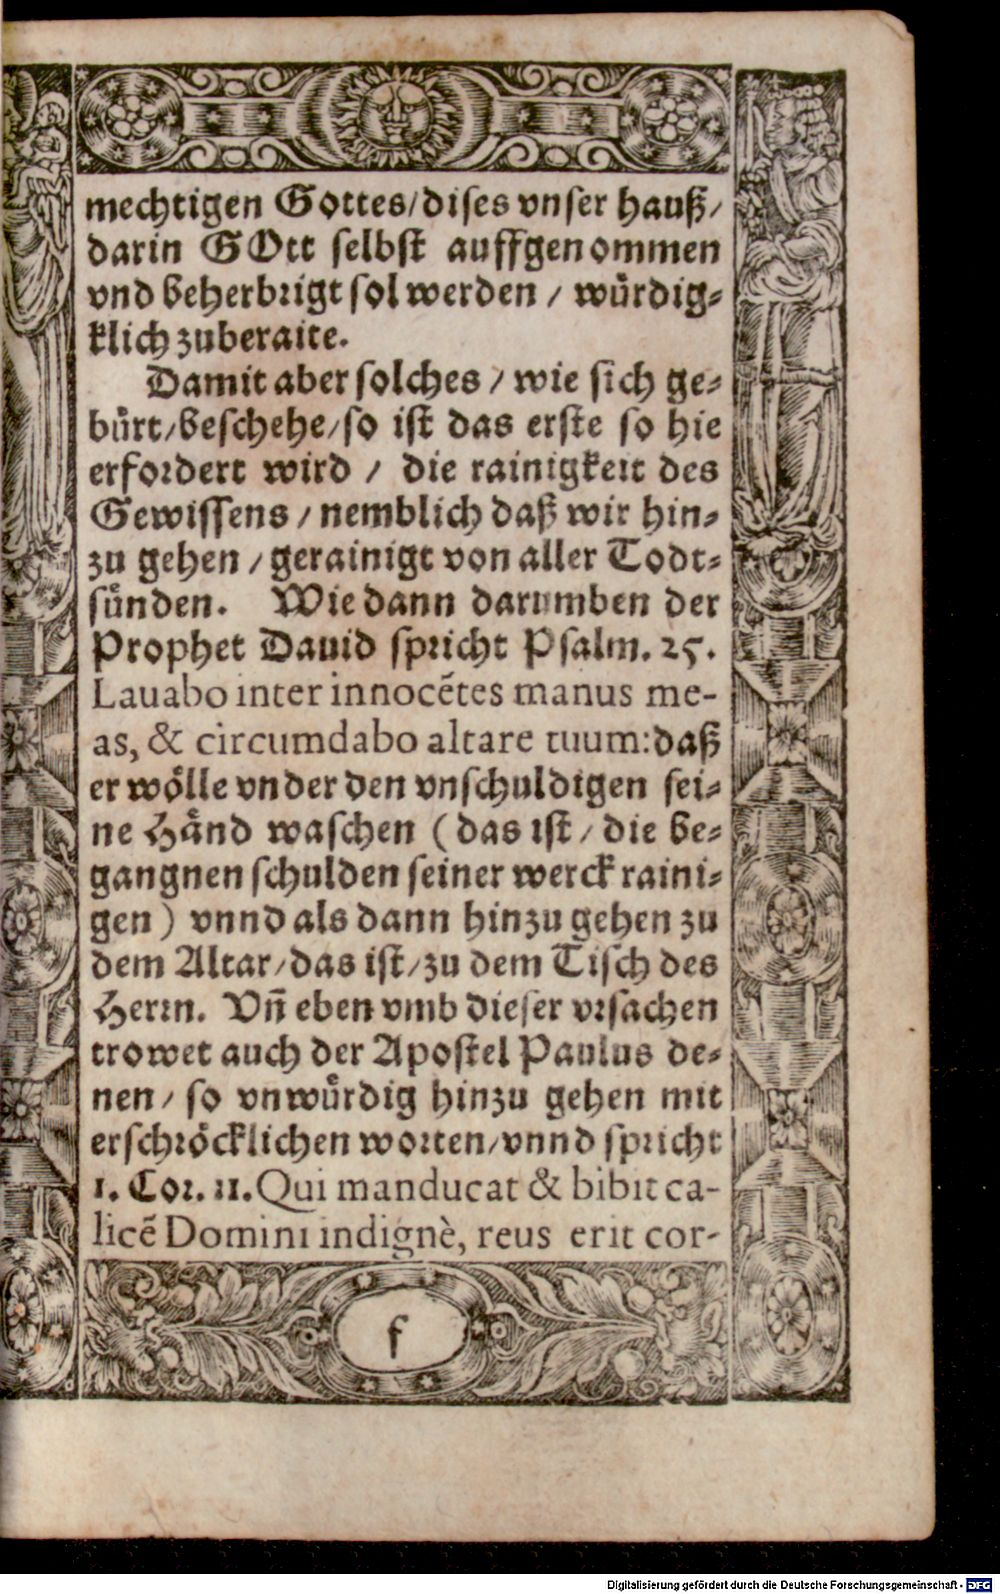 mechtigen Gottes/dises vnser hauß/
darin GOtt selbst auffgenommen
vnd beherbrigt sol werden / wuͤrdig⸗
klich zuberaite.
Damit aber solches / wie sich ge⸗
buͤrt/beschehe/so ist das erste so hie
erfordert wird / die rainigkeit des
Gewissens / nemblich daß wir hin⸗
zu gehen / gerainigt von aller Todt⸗
suͤnden. Wie dann darumben der
Prophet Dauid spricht Psalm. 25.
Lauabo inter innocẽtes manus me-
as, & circumdabo altare tuum: daß
er woͤlle vnder den vnschuldigen sei⸗
ne Haͤnd waschen ( das ist / die be⸗
gangnen schulden seiner werck raini⸗
gen ) vnnd als dann hinzu gehen zu
dem Altar/das ist/zu dem Tisch des
Herrn. Vñ eben vmb dieser vrsachen
trowet auch der Apostel Paulus de⸗
nen / so vnwuͤrdig hinzu gehen mit
erschroͤcklichen worten/vnnd spricht
1. Cor. 11. Qui manducat & bibit ca-
licẽ Domini indignè, reus erit cor-
f
Digitalisierung gefördert durch die Deutsche Forschungsgemeinschaft - DFG